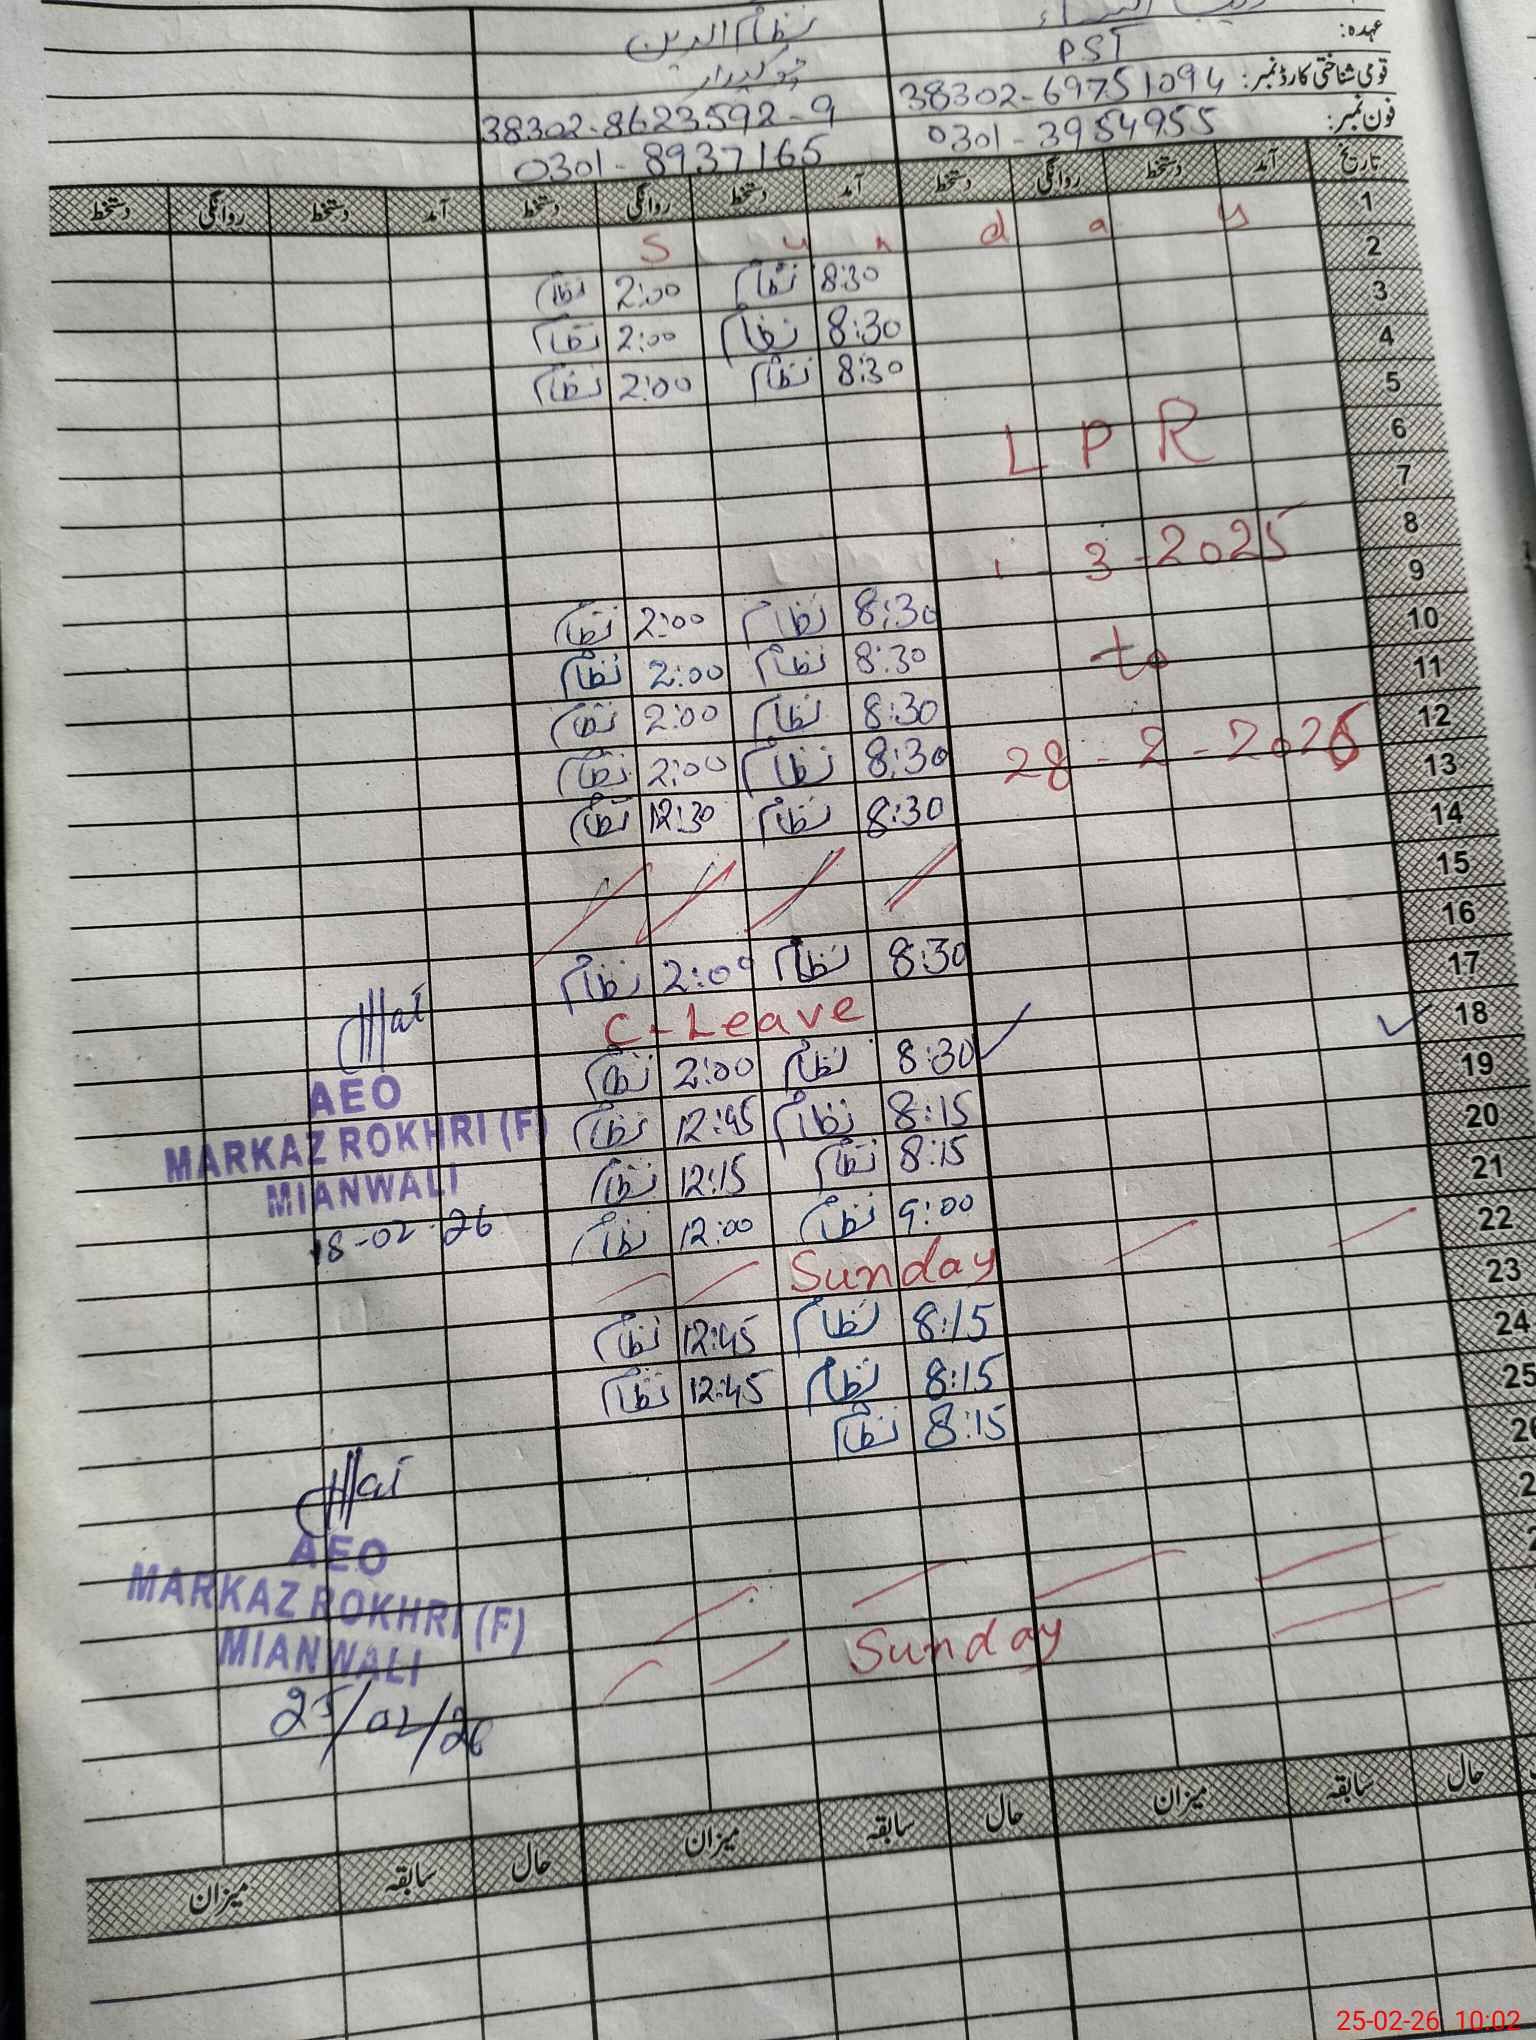 عہدہ: PST چوکیدار نظام الدین
قومی شناختی کارڈ نمبر: 38302-69751094 38302-8623592-9
فون نمبر: 0301-3954955 0301-8937165
تاریخ آمد دستخط روانگی دستخط آمد دستخط روانگی دستخط آمد دستخط روانگی دستخط
1 Sunday
2 8:30 نظام 2:00 نظام
3 8:30 نظام 2:00 نظام
4 8:30 نظام 2:00 نظام
5
6 L P R
7
8 1-3-2025
9 8:30 نظام 2:00 نظام
10 8:30 نظام 2:00 نظام
11 to 8:30 نظام 2:00 نظام
12 8:30 نظام 2:00 نظام
13 28-2-2026 8:30 نظام 12:30 نظام
14
15
16 8:30 نظام 2:00 نظام
17 C-Leave
18 8:30 نظام 2:00 نظام
19 8:15 نظام 12:45 نظام
20 8:15 نظام 12:15 نظام
21 9:00 نظام 12:00 نظام
22 Sunday
23 8:15 نظام 12:45 نظام
24 8:15 نظام 12:45 نظام
25 8:15 نظام
26
AEO
MARKAZ ROKHRI (F)
MIANWALI
18-02-26
AEO
MARKAZ ROKHRI (F)
MIANWALI
25/02/26
Sunday
حال سابقہ میزان حال سابقہ میزان حال سابقہ میزان
25-02-26 10:02